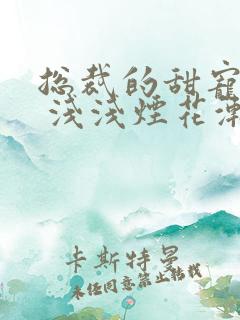 总裁的甜宠
浅浅烟花渐
卡斯特曼
未经同意禁止转载